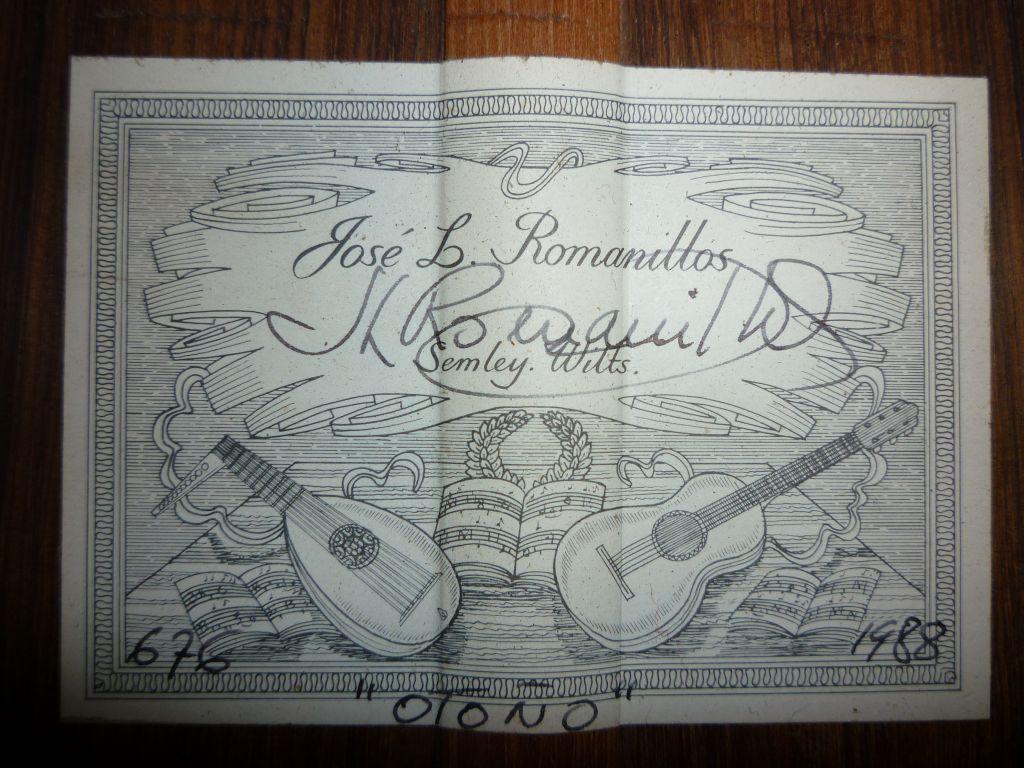 José L. Romanillos
JL Romanillos
Semley. Wilts.
676
1988
"OTOÑO"